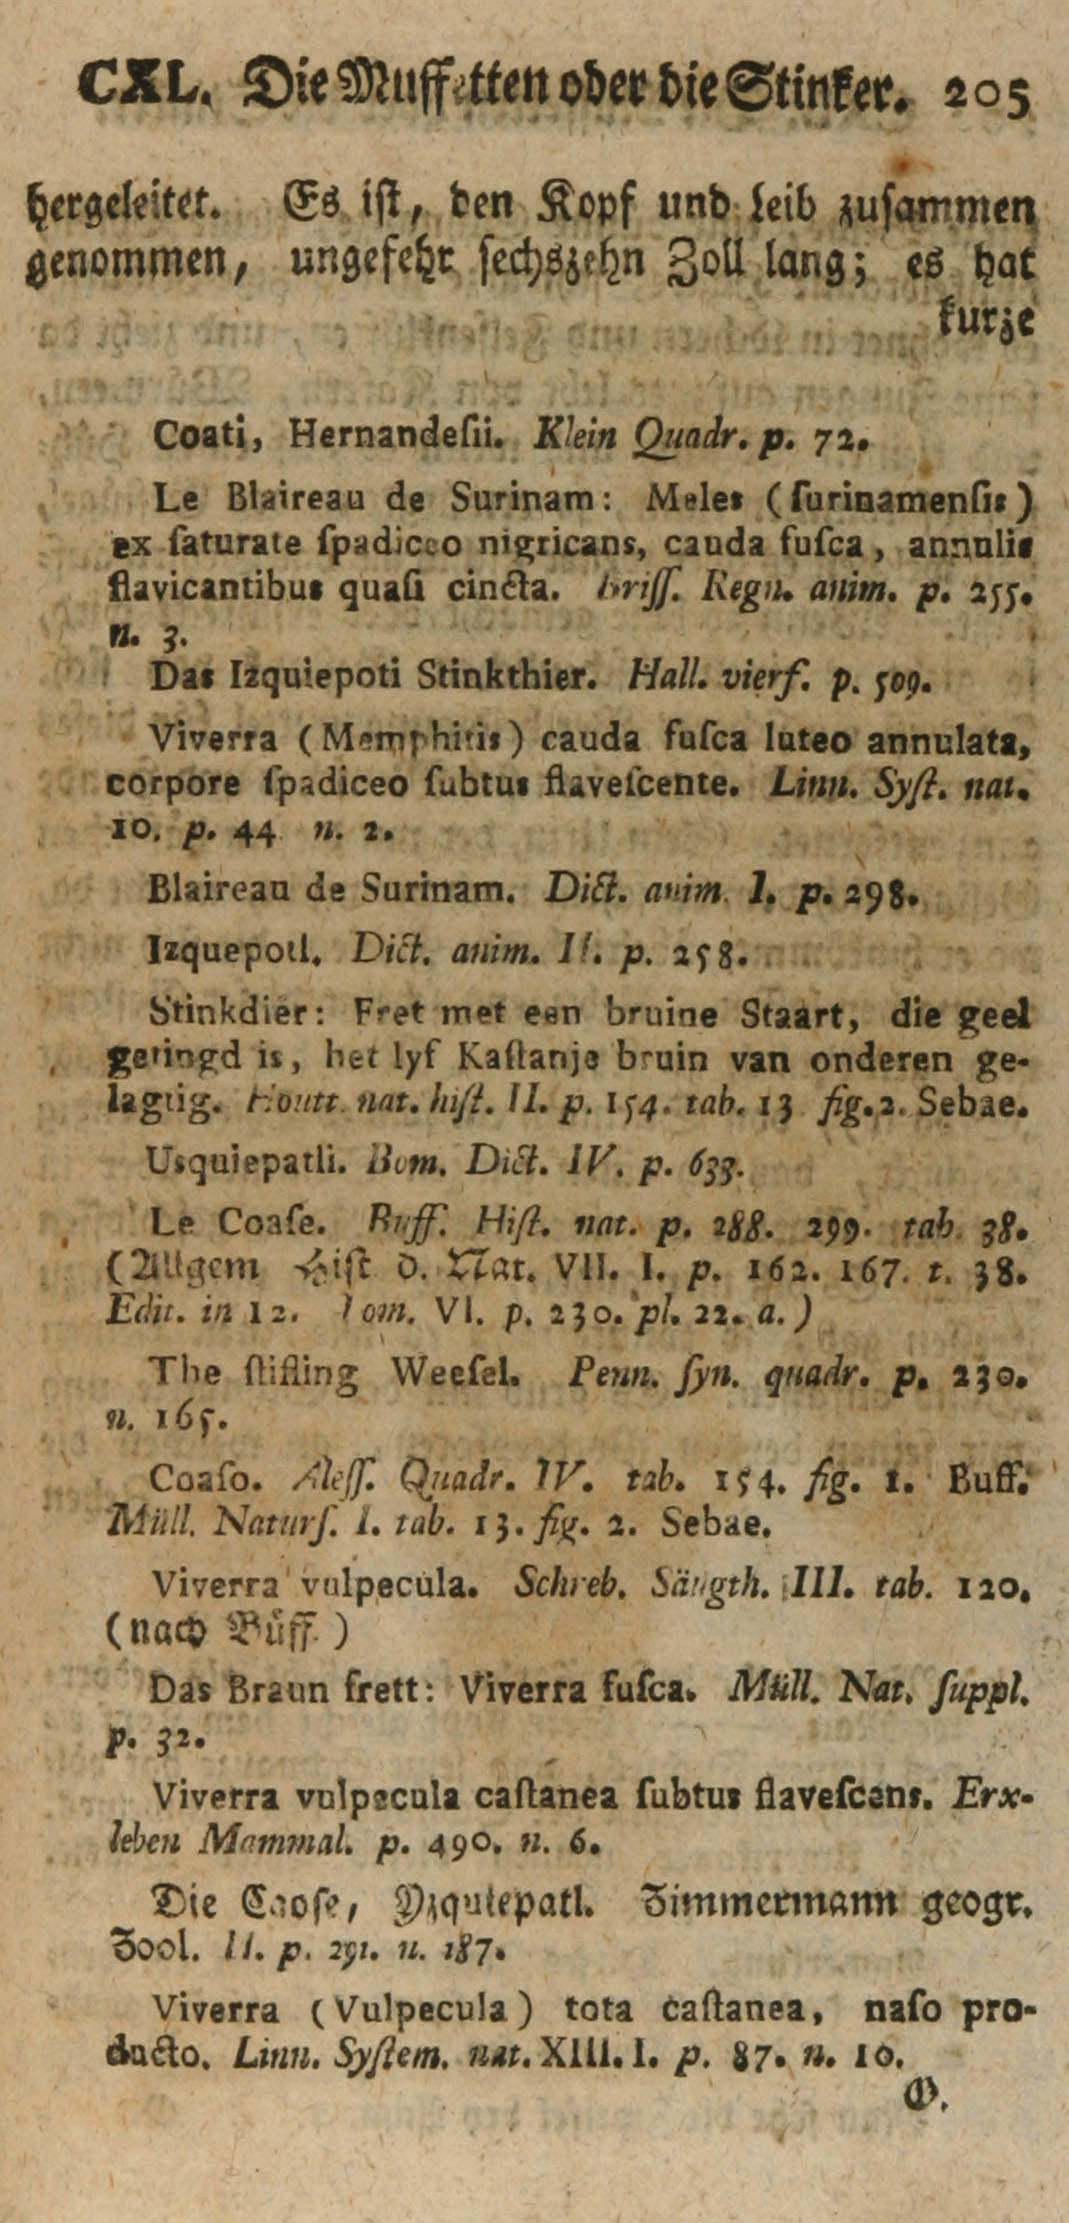 CXL. Die Muffetten oder die Stinker. 205
hergeleitet. Es ist, den Kopf und Leib zusammen
genommen, ungefehr sechszehn Zoll lang; es hat
kurze
Coati, Hernandeſii. Klein Quadr. p. 72.
Le Blaireau de Surinam: Meles (ſurinamenſis)
ex ſaturate ſpadiceo nigricans, cauda fuſca, annulis
flavicantibus quaſi cincta. Briſſ. Regn. anim. p. 255.
n. 3.
Das Izquiepoti Stinkthier. Hall. vierf. p. 509.
Viverra (Memphitis) cauda fuſca luteo annulata,
corpore ſpadiceo ſubtus flaveſcente. Linn. Syſt. nat.
10. p. 44 n. 2.
Blaireau de Surinam. Dict. anim. I. p. 298.
Izquepotl. Dict. anim. II. p. 258.
Stinkdier: Fret met een bruine Staart, die geel
geringd is, het lyf Kaſtanje bruin van onderen ge-
lagtig. Houtt. nat. hiſt. II. p. 154. tab. 13 fig. 2. Sebae.
Usquiepatli. Bom. Dict. IV. p. 633.
Le Coaſe. Buff. Hiſt. nat. p. 288. 299. tab. 38.
(Allgem Hiſt d. Nat. VII. I. p. 162. 167. t. 38.
Edit. in 12. Tom. VI. p. 230. pl. 22. a.)
The ſtifling Weeſel. Penn. ſyn. quadr. p. 230.
n. 165.
Coaſo. Aleſſ. Quadr. IV. tab. 154. fig. 1. Buff.
Müll. Naturſ. I. tab. 13. fig. 2. Sebae.
Viverra vulpecula. Schreb. Säugth. III. tab. 120.
(nach Büff.)
Das Braun frett: Viverra fuſca. Müll. Nat. ſuppl.
p. 32.
Viverra vulpecula caſtanea ſubtus flaveſcens. Erx-
leben Mammal. p. 490. n. 6.
Die Caoſe, Yzquiepatl. Zimmermann geogr.
Zool. II. p. 291. n. 187.
Viverra (Vulpecula) tota caſtanea, naſo pro-
ducto. Linn. Syſtem. nat. XIII. I. p. 87. n. 10.
G.